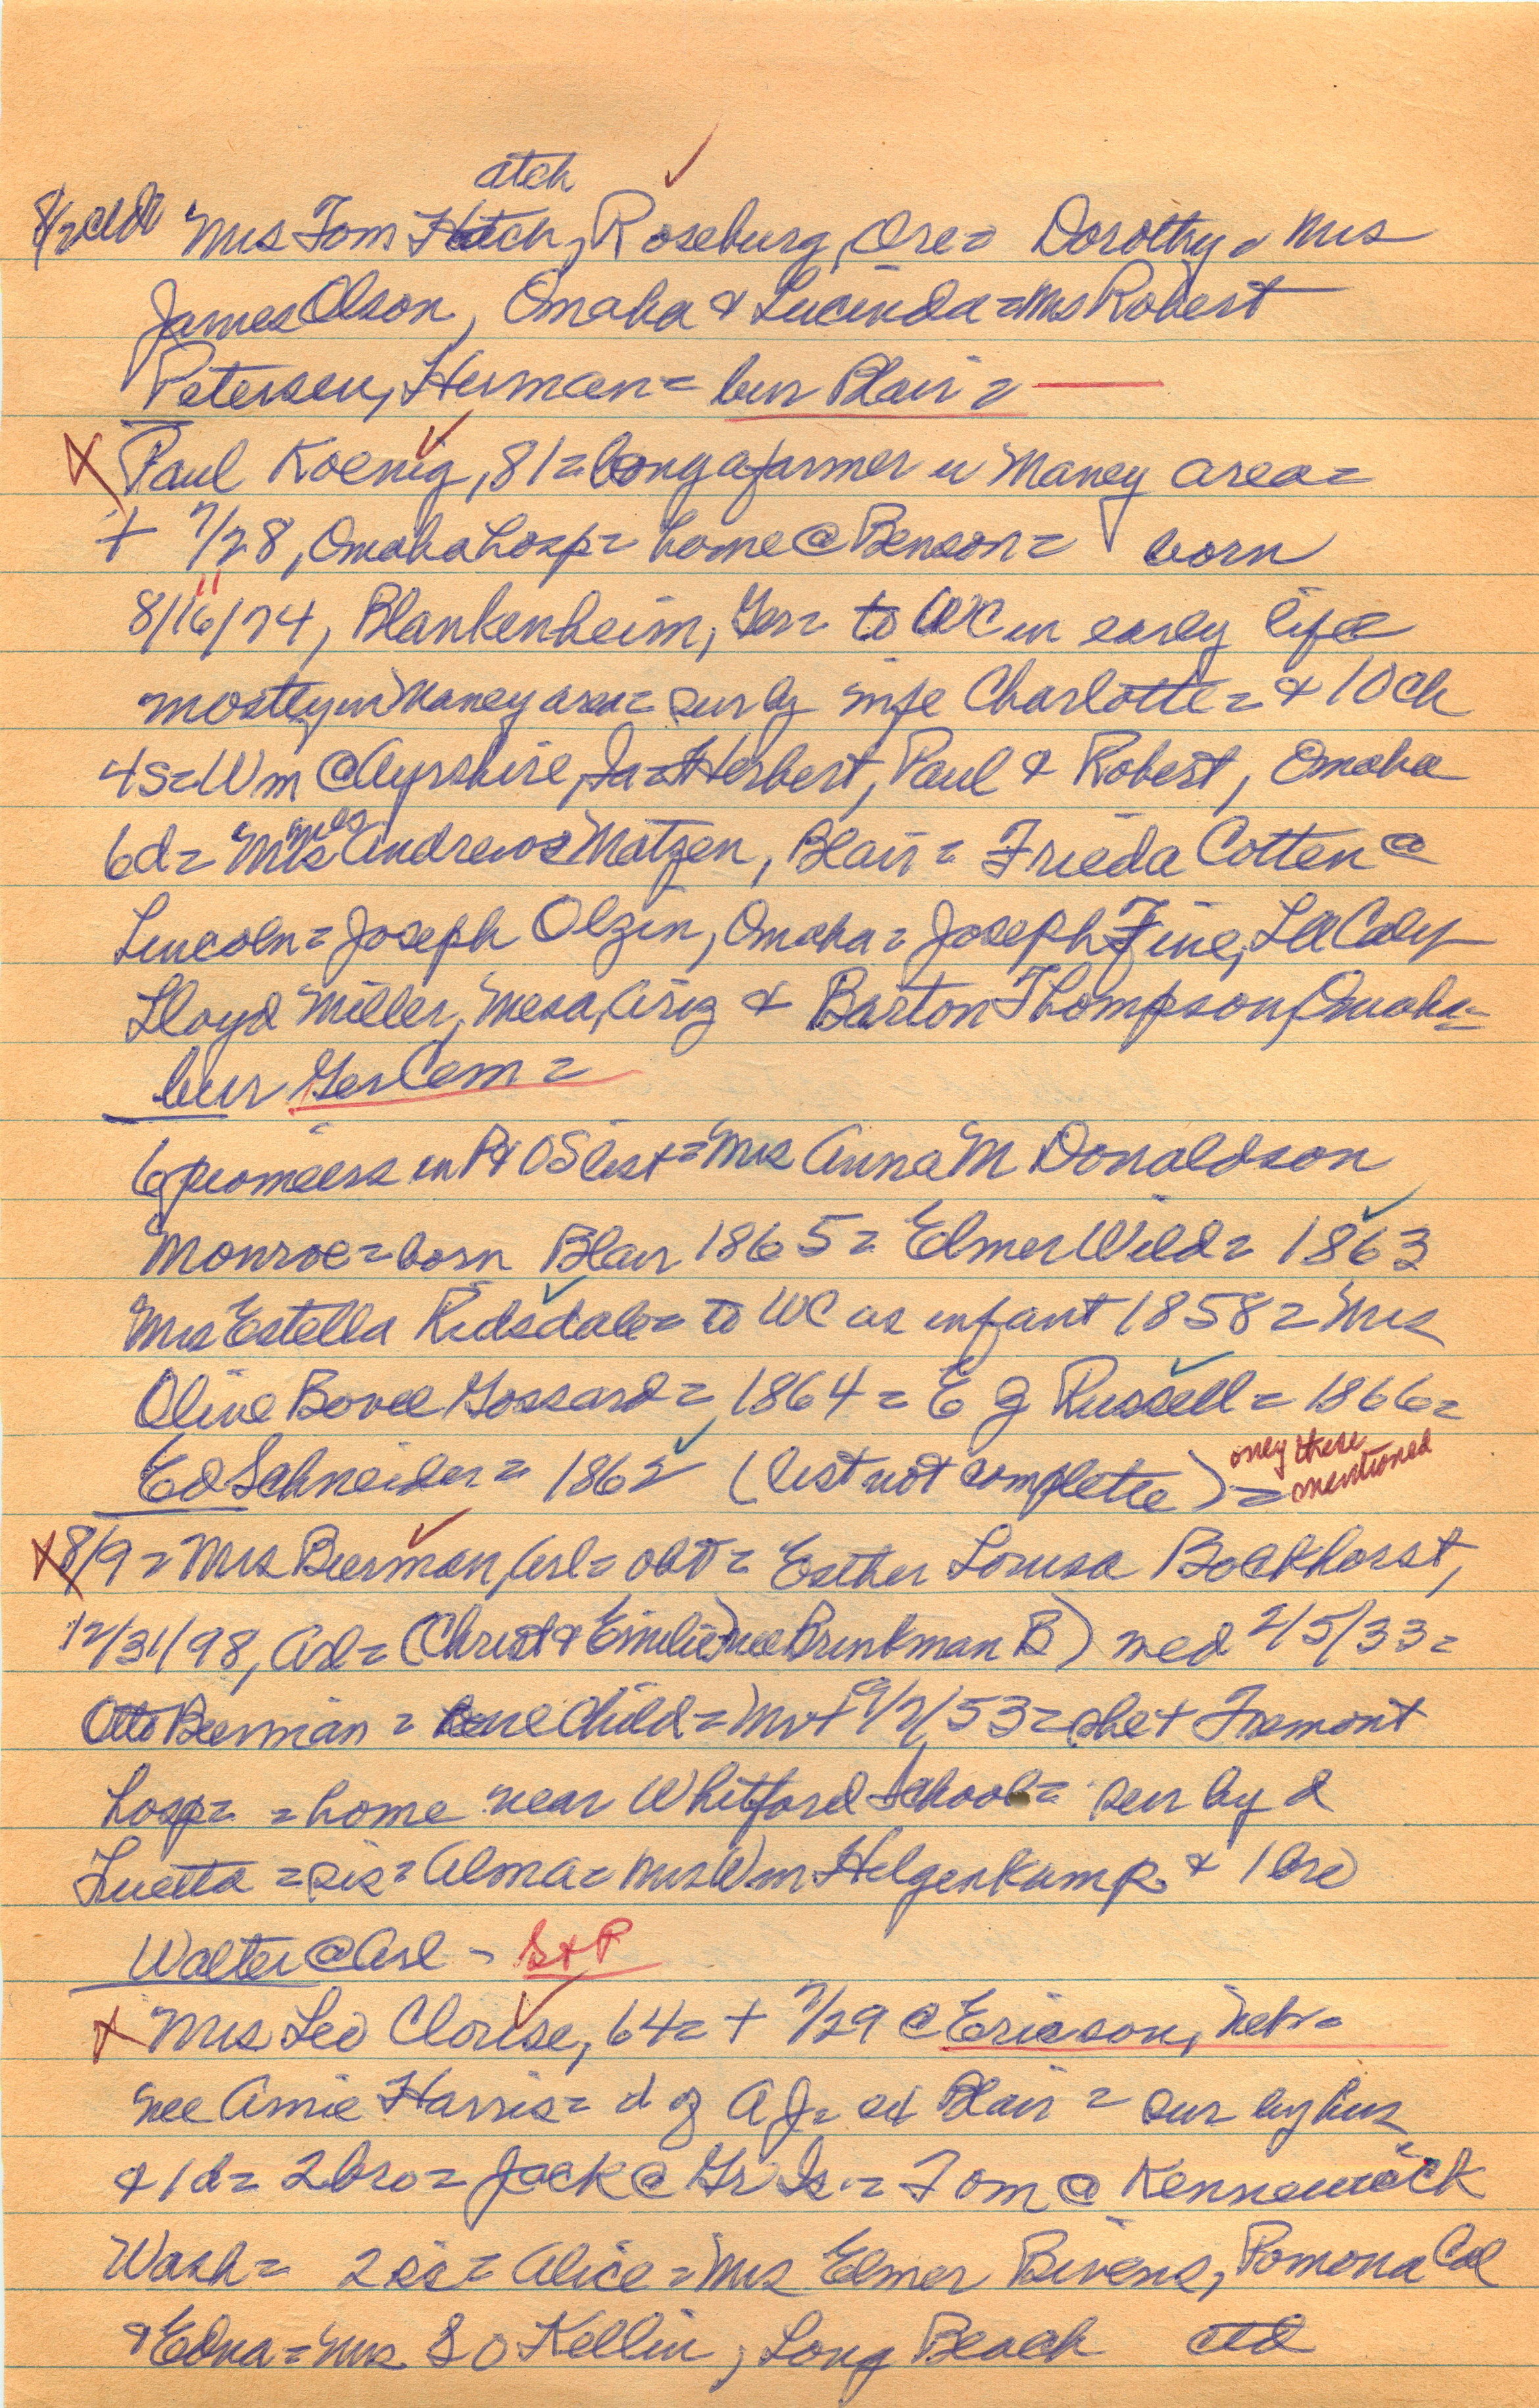 atch
8/2 ctd Mrs Tom Hatch, Roseburg, Ore = Dorothy = Mrs
James Olson, Omaha & Lucinda = Mrs Robert
Petersen, Herman = bur Blair =
X Paul Koenig, 81 = long a farmer in Maney area =
+ 7/28, Omaha hosp = home @ Benson = born
8/16/74, Blankenheim, Ger = to WC in early life
mostly in Maney area = sur by wife Charlotte = & 10 ch
4s = Wm @ Ayrshire, Ia = Herbert, Paul & Robert, Omaha
6d = Mmes Andrew Matzen, Blair = Frieda Cotten @
Lincoln = Joseph Olzin, Omaha = Joseph Fine, Calif
Lloyd Miller, Mesa, Ariz & Barton Thompson, Omaha =
bur Ger Cem =
6 pioneers in P & OS list = Mrs Anna M Donaldson
Monroe = born Blair 1865 = Elmer Wild = 1863
Mrs Estella Ridsdale = to WC as infant 1858 = Mrs
Olive Bovee Gossard = 1864 = E G Russell = 1866 =
Ed Schneider = 1862 (list not complete) = only these mentioned
X 8/9 = Mrs Beerman, Arl = obt = Esther Louisa Bockhorst,
12/31/98, Arl = (Christ & Emilie nee Brinkman B) med 2/5/33 =
Otto Beerman = one child = Mr + 9/2/53 = she + Fremont
hosp = = home near Whitford School = sur by d
Luetta = sis = Alma = Mrs Wm Helgenkamp & 1 bro
Walter @ Arl - S + P
X Mrs Leo Clouse, 64 = + 7/29 @ Ericson, Nebr =
nee Amie Harris = d of A J = ed Blair = sur by hus
& 1d = 2 bro = Jack @ Gr Is = Tom @ Kennewick
Wash = 2 sis = Alice = Mrs Elmer Bivens, Pomona Cal
& Edna = Mrs S O Kellin, Long Beach ctd